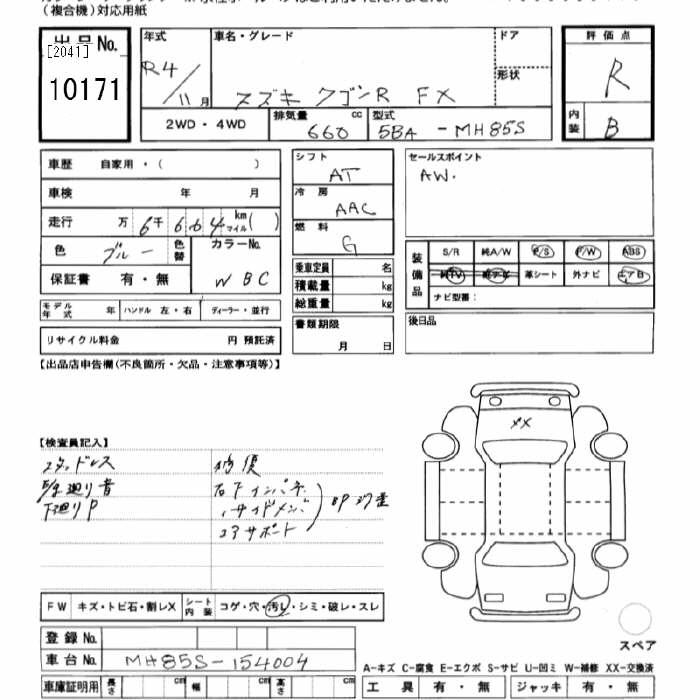 （複合機）対応用紙
出品 No.
[2041]
10171
年式
R4／11月
車名・グレード
スズキ ワゴンR FX
ドア
形状
評価点
R
内装
B
2WD・4WD
排気量
660
cc
型式
5BA - MH85S
車歴 自家用・( )
車検 年 月
走行 万 6千 6 6 4 km マイル( )
色 ブルー
色替
カラーNo.
WBC
保証書 有・無
モデル年式 年 ハンドル 左・右 ディーラー・並行
リサイクル料金 円 預託済
シフト
AT
冷房
AAC
燃料
G
乗車定員 名
積載量 kg
総重量 kg
書類期限
月 日
セールスポイント
AW.
装備品
S/R 純A/W P/S P/W ABS
純TV 純ナビ 革シート 外ナビ エアB
ナビ型番：
後日品
【出品店申告欄(不良箇所・欠品・注意事項等)】
【検査員記入】
スタッドレス
下廻りP
修復
右下インパネ
サイドメンバ
コアサポート
XX
FW キズ・トビ石・割レX
シート内装 コゲ・穴・汚レ・シミ・破レ・スレ
登録 No.
車台 No. MH85S-154004
車庫証明用 長さ cm 幅 cm 高さ cm
スペア
A-キズ C-腐食 E-エクボ S-サビ U-凹ミ W-補修 XX-交換済
工具 有・無 ジャッキ 有・無